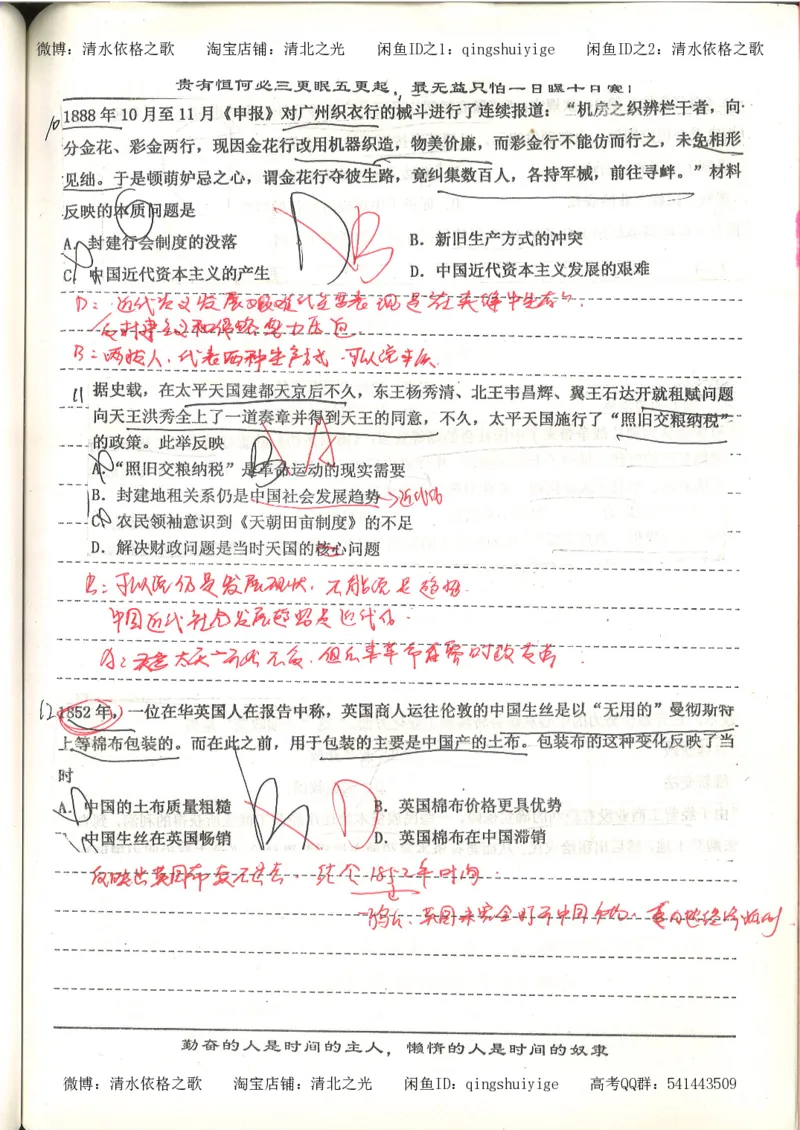 微博：清水依格之歌 淘宝店铺：清北之光 闲鱼ID之1：qingshuiyige 闲鱼ID之2：清水依格之歌
贵有恒何必三更眠五更起，最无益只怕一日曝十日寒！
10 1888 年 10 月至 11 月《申报》对广州织衣行的械斗进行了连续报道：“机房之织辨栏干者，向
分金花、彩金两行，现因金花行改用机器织造，物美价廉，而彩金行不能仿而行之，未免相形
见绌。于是顿萌妒忌之心，谓金花行夺彼生路，竟纠集数百人，各持军械，前往寻衅。”材料
反映的本质问题是
D B
A．封建行会制度的没落 B．新旧生产方式的冲突
C．中国近代资本主义的产生 D．中国近代资本主义发展的艰难
D：近代
B：两拨人，代表两种生产方式
11 据史载，在太平天国建都天京后不久，东王杨秀清、北王韦昌辉、翼王石达开就租赋问题
向天王洪秀全上了一道奏章并得到天王的同意，不久，太平天国施行了“照旧交粮纳税”
的政策。此举反映
B A
A．“照旧交粮纳税”是革命运动的现实需要
B．封建地租关系仍是中国社会发展趋势→近代化
C．农民领袖意识到《天朝田亩制度》的不足
D．解决财政问题是当时天国的核心问题
B：可以说仍是发展现状，不能说是趋势
中国近代社会发展趋势是近代化．
12 1852 年，一位在华英国人在报告中称，英国商人运往伦敦的中国生丝是以“无用的”曼彻斯特
上等棉布包装的。而在此之前，用于包装的主要是中国产的土布。包装布的这种变化反映了当
时
B D
A．中国的土布质量粗糙 B．英国棉布价格更具优势
C．中国生丝在英国畅销 D．英国棉布在中国滞销
反映出英国布卖不出去，结合1852年时间．
勤奋的人是时间的主人，懒惰的人是时间的奴隶
微博：清水依格之歌 淘宝店铺：清北之光 闲鱼ID：qingshuiyige 高考QQ群：541443509